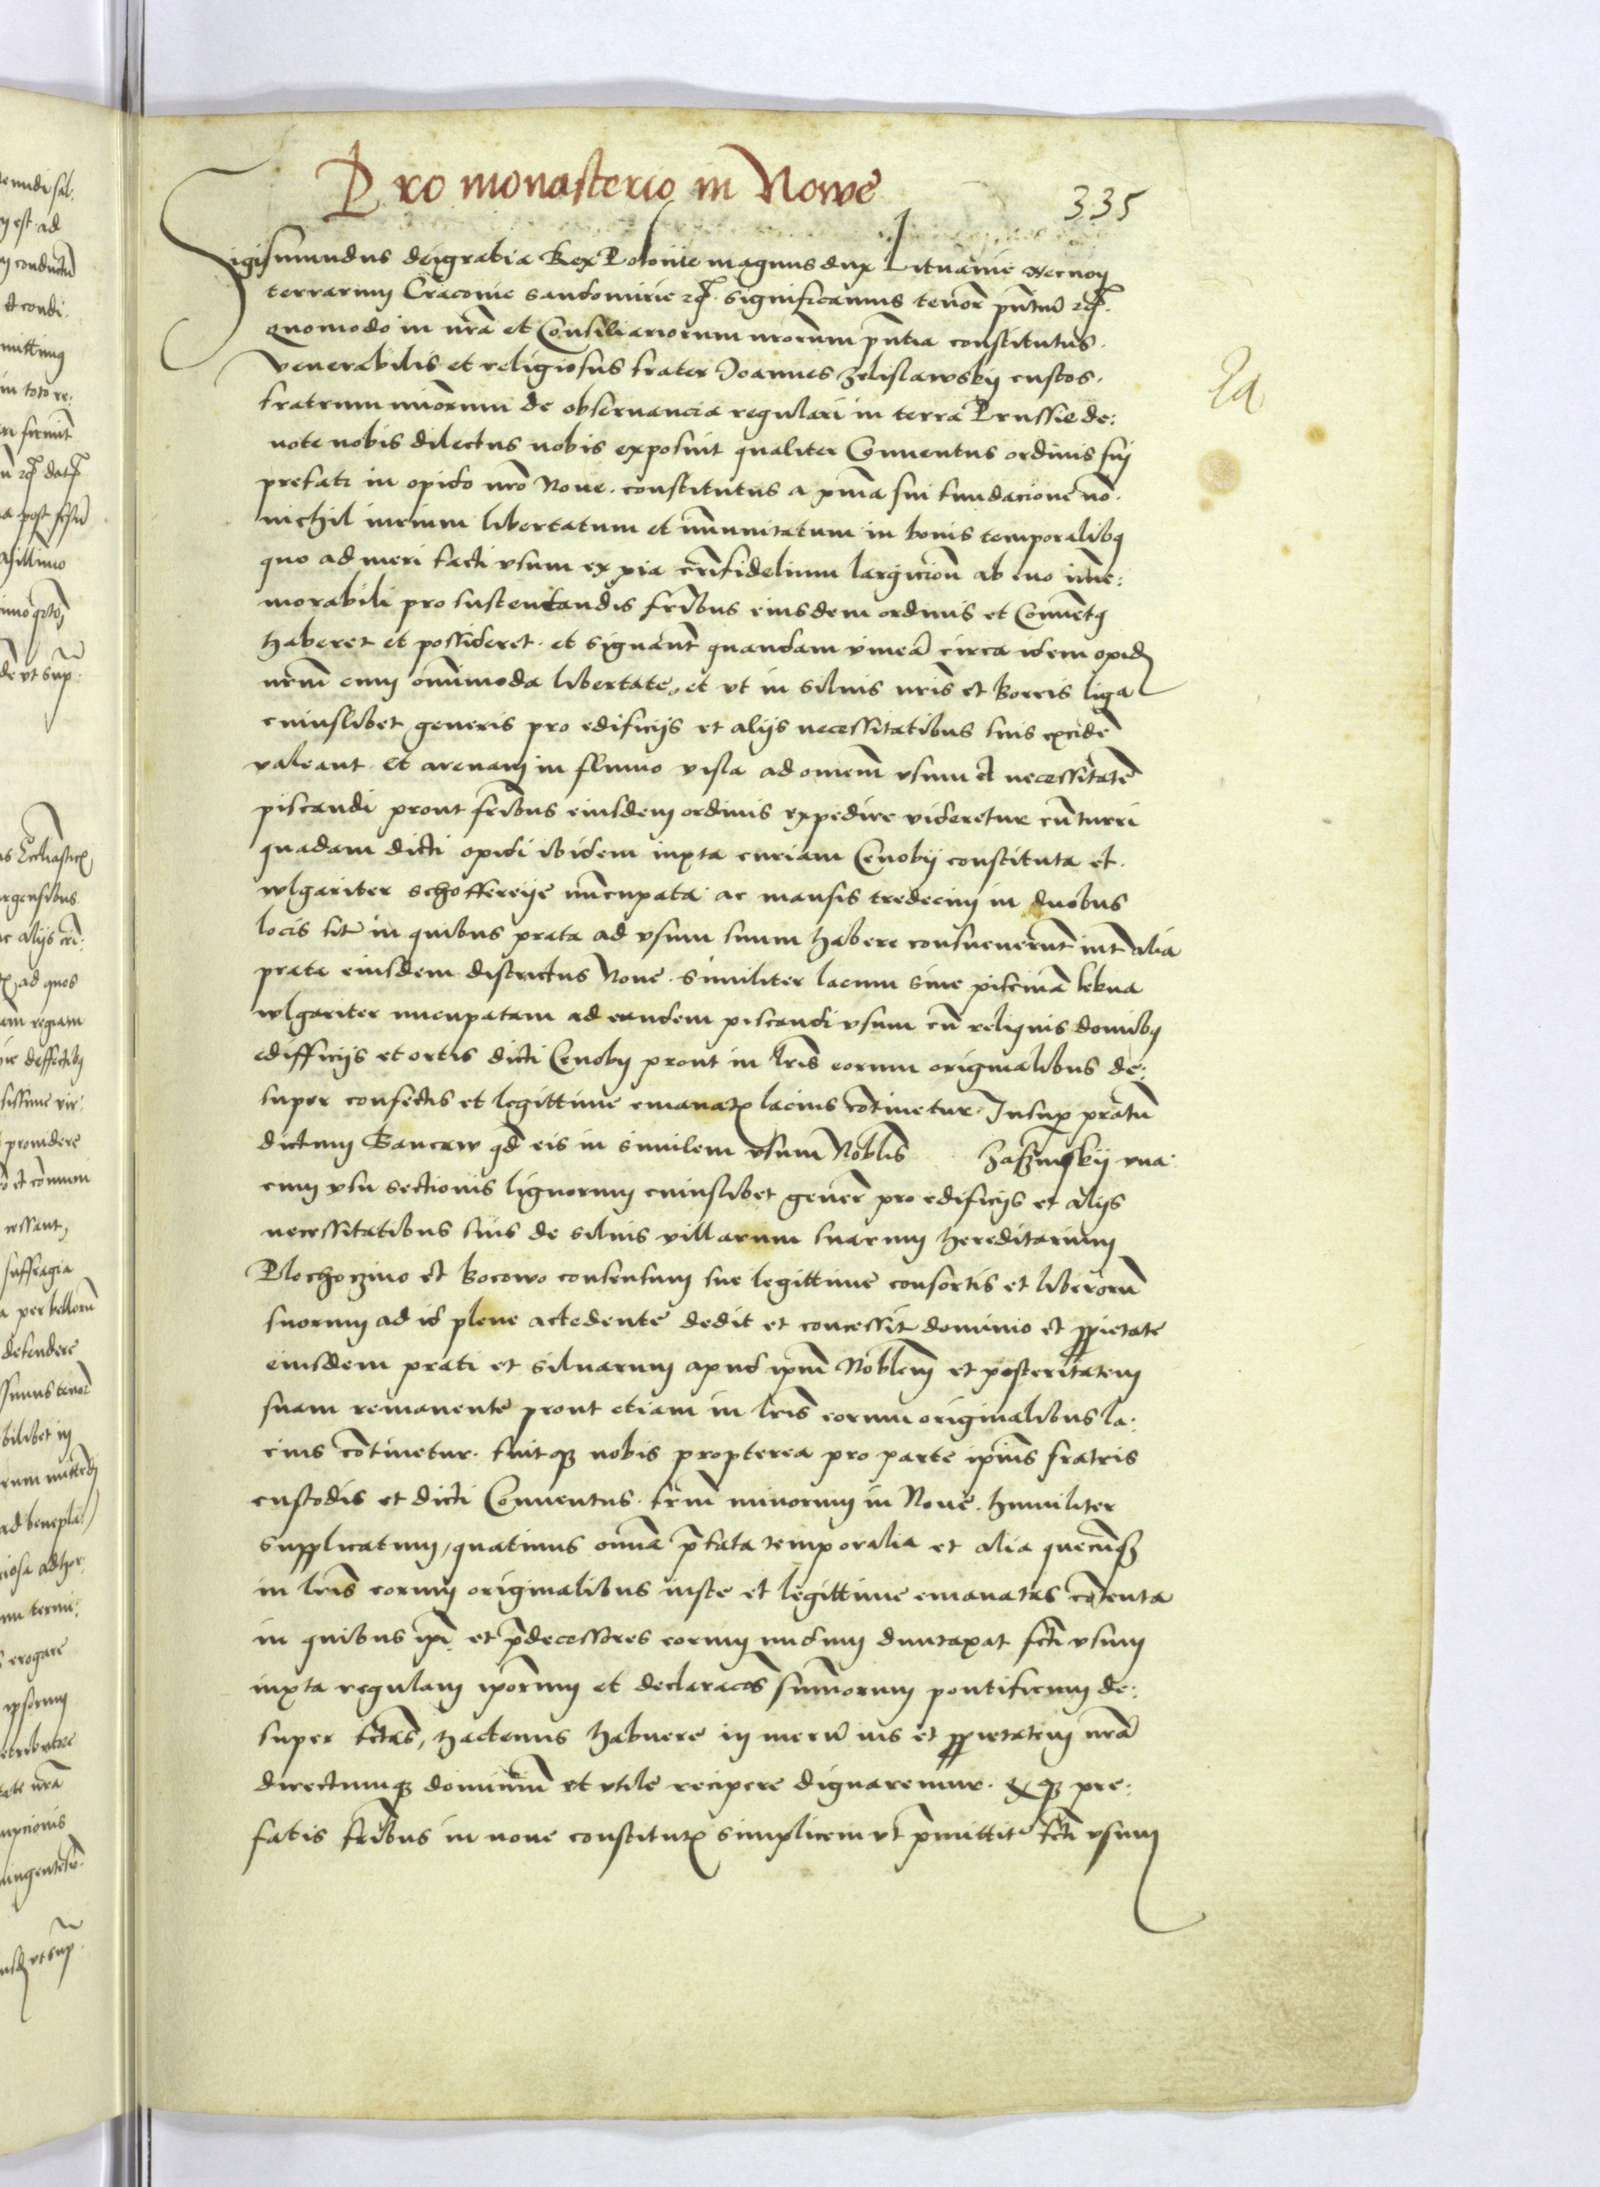 Pro monasterio in Nowe
335
Sigismundus deigratia Rex Polonie magnus dux Lituanie Necnon
terrarum Cracovie Sandomirie significamus tenore pntiũ
quomodo in nrã et Consiliariorum nrorum pñtia constitutus.
venerabilis et religiosus frater Joannes Zelislawskij custos.
fratrum minorum de obseruancia regulari in terra Prussie de:
uote nobis dilectus nobis exposuit qualiter Conuentus ordinis sui
prefati in opido nro Noue. constitutus a prima sui fundacione nõ.
nichil iurium libertatum et imunitatum in bonis temporalibq
quo ad meri facti vsum ex pia fidelium largicion ab euo ime:
morabili pro sustentandis fribus eiusdem ordinis et Conuetq
haberet et possideret. et signant quandam vineã circa idem opid
nrm cum omnimoda libertate, et vt in siluis nris et borris liga
cuiuslibet generis pro edificijs et alijs necessitatibus suis excide
valeant. et arenam in fluuio visla ad omem vsum et necessitatẽ
piscandi prout fribus eiusdem ordinis expedire videretur cũ turri
quadam dicti opidi ibidem iuxta curiam Cenobij constituta et.
wlgariter schoffereije nũcupata. ac mansis tredecim in duobus
locis sit in quibus prata ad vsum suum habere consueuerunt int alia
prata eiusdem districtus Noue. similiter lacum siue piscinã lekna
wlgariter nucupatam ad eandem piscandi vsum cũ reliquis domibq
edifficijs et ortis dicti Cenobij prout in lris eorum originalibus de:
super confectis et legittime emanatis lacius cõtinetur. Insup pratũ
dictum Bancrw qd eis in similem vsum Noblis Zaksinskij vna
cum vsu sectionis lignorum cuiuslibet gener pro edificijs et alijs
necessitatibus suis de siluis villarum suarum hereditarium
Plochozino et Kocowo consensum sue legittime consortis et liberorũ
suorum ad id plene accedente dedit et concessit dominio et ppietate
eiusdem prati et siluarum apud ipm Noblem et posteritatem
suam remanente prout etiam in lris eorum originalibus la:
cius cõtinetur. fuitqz nobis propterea pro parte ipius fratris
custodis et dicti Conuentus. frm minorum in Noue. humiliter
supplicatum, quatinus omia pfata temporalia et alia quecũqz
in lris eorum originalibus iuste et legittime emanatas cõtenta
in quibus ipi et pdecessores eorum nudum duntaxat fcti vsum
iuxta regulam iporum et declaracõs sumorum pontificum de:
super fctas, hactenus habuere in merũ ius et ppietatem nrã
directumqz dominium et vtile recipere dignaremur. qz pre:
fatis fribus in noue constitutis simplicem vt pmittit fcti vsum